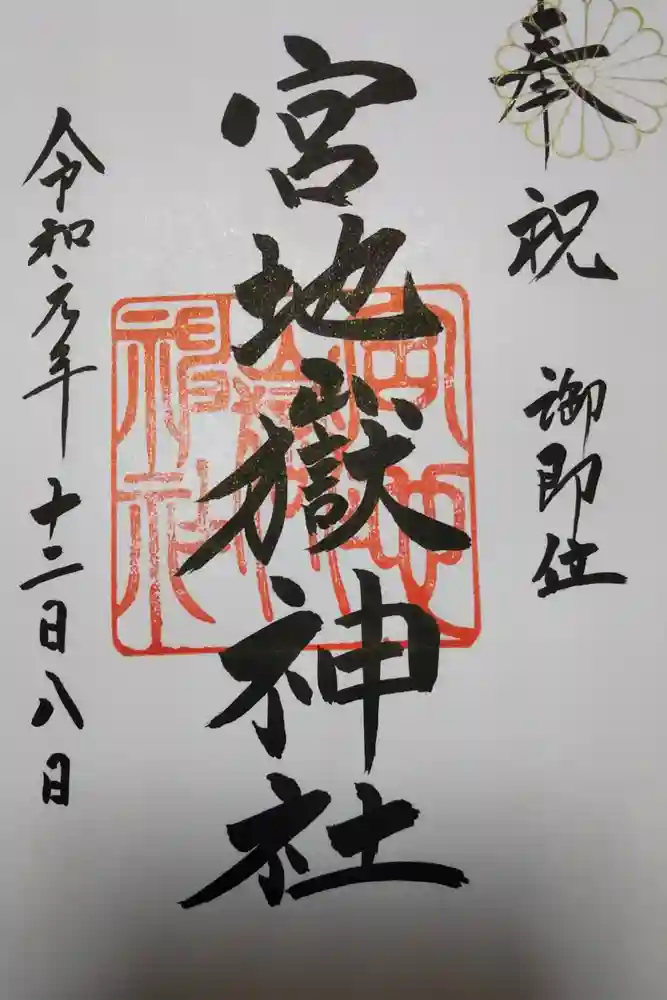 奉祝 御即位
宮地嶽神社
令和元年十二日八日
宮地嶽神社